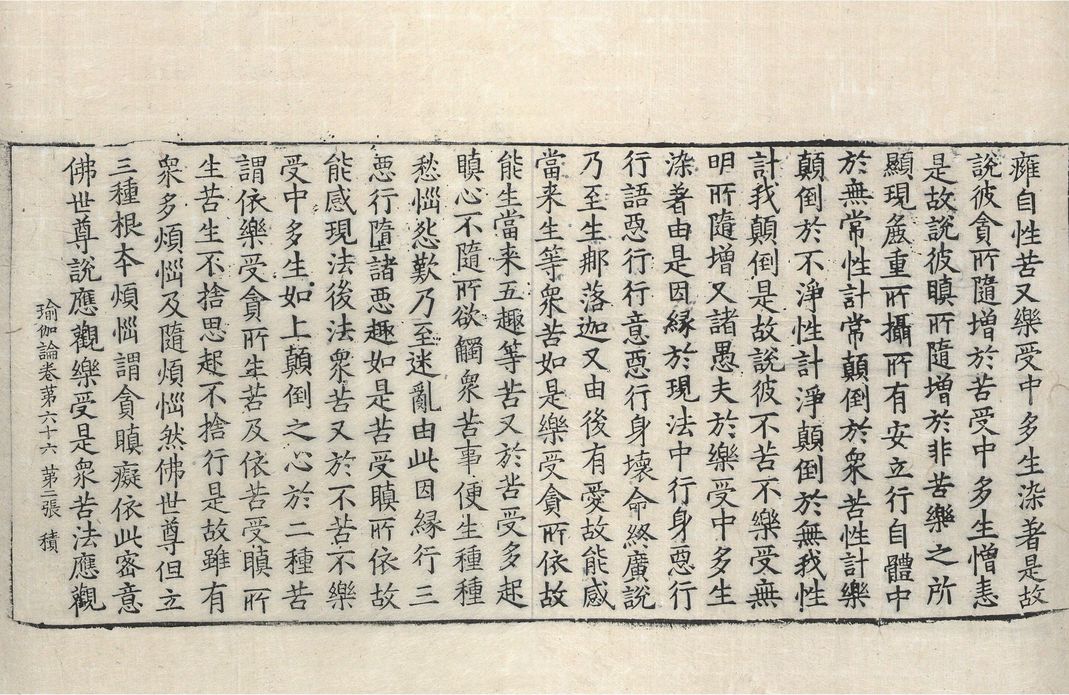 癕自性苦又樂受中多生染著是故
說彼貪所隨增於苦受中多生憎恚
是故說彼瞋所隨增於非苦樂之所
顯現麁重所攝所有安立行自體中
於無常性計常顛倒於衆苦性計樂
顛倒於不淨性計淨顛倒於無我性
計我顛倒是故說彼不苦不樂受無
明所隨增又諸愚夫於樂受中多生
染著由是因緣於現法中行身惡行
行語惡行行意惡行身壞命終廣說
乃至生那落迦又由後有愛故能感
當来生等衆苦如是樂受貪所依故
能生當来五趣等苦又於苦受多起
瞋心不隨所欲觸衆苦事便生種種
愁惱怨歎乃至迷亂由此因緣行三
惡行墮諸惡趣如是苦受瞋所依故
能感現法後法衆苦又於不苦不樂
受中多生如上顛倒之心於二種苦
謂依樂受貪所生苦及依苦受瞋所
生苦生不捨思起不捨行是故雖有
衆多煩惱及隨煩惱然佛世尊但立
三種根夲煩惱謂貪瞋癡依此密意
佛世尊說應觀樂受是衆苦法應觀
瑜伽論卷第六十六 第二張 積